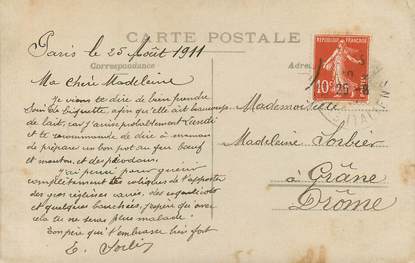 CARTE POSTALE
Paris le 25 Août 1911
Correspondance
Ma Chère Madeleine
Je viens te dire de bien prendre
soin de Biquette, afin qu'elle ait beaucoup
de lait, car j'arrive probablement Lundi
et te recommande de dire à maman
de préparer un bon pot au feu bœuf
et mouton, et des
J'ai pensé pour guérir
complètement tes coliques de t'apporter
des gos réglisses carrés, des
et quelques bouchées, j'espère qu'avec
cela tu ne seras plus malade.
Ton père qui t'embrasse bien fort
E. Sorbier
REPUBLIQUE FRANÇAISE
10
POSTES
Mademoiselle
Madeleine Sorbier
à Grâne
Drôme